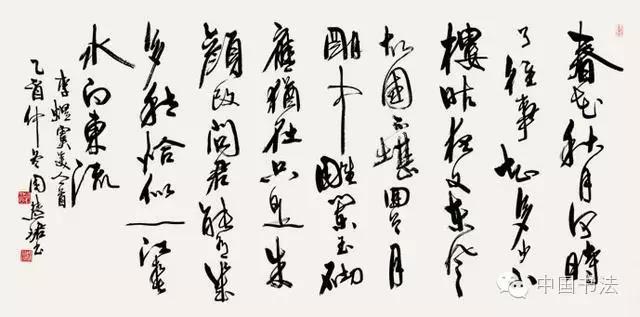 春花秋月何時
了往事知多少小
樓昨夜又東風
故國不堪回首月
明中雕闌玉砌
應猶在只是朱
顏改問君能有幾
多愁恰似一江春
水向東流
李煜虞美人首
乙酉仲冬周慧珺書
中国书法